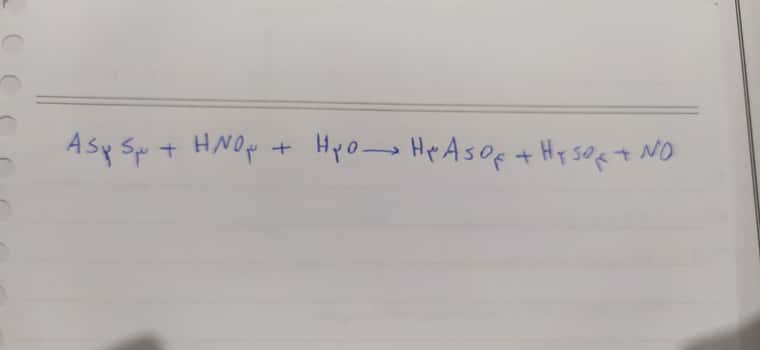 As۲S۳ + HNO۳ + H۲O → H۳AsO۴ + H۲SO۴ + NO